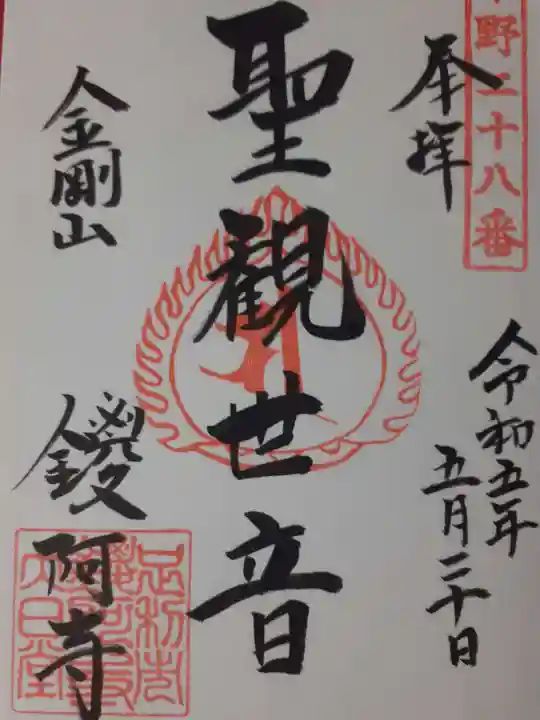 野二十八番
奉拝
令和五年
五月三十日
聖観世音
金剛山
鑁阿寺